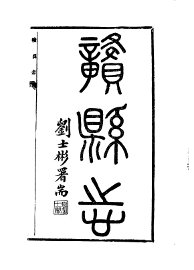 贛縣志
劉士彬署耑